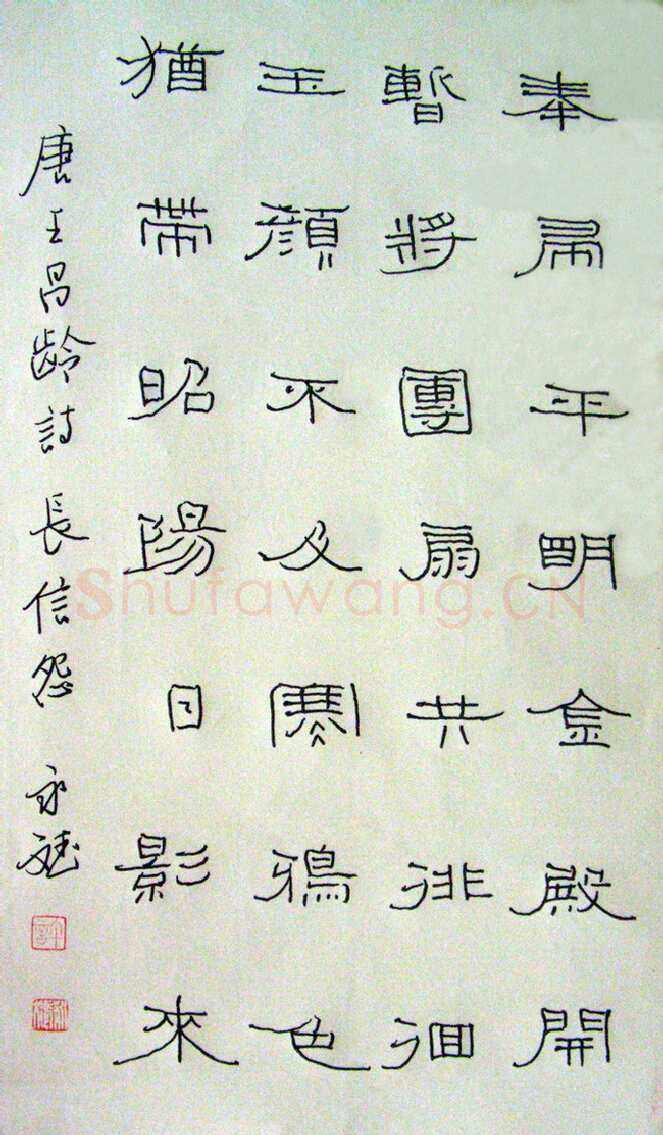 奉帚平明金殿開
暫將團扇共徘徊
玉顔不及寒鴉色
猶帶昭陽日影來
唐王昌齡詩長信怨 永
Shufawang.CN